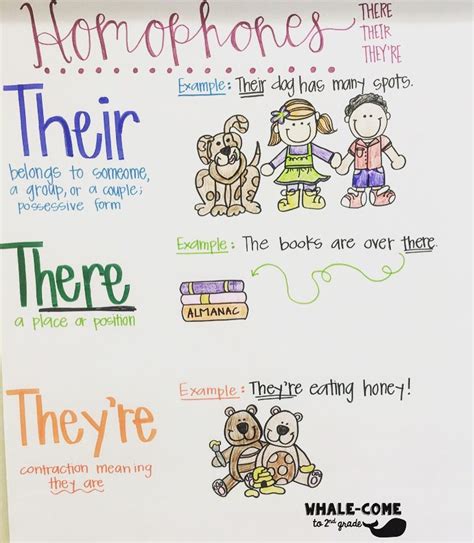 Homophones
THERE
THEIR
THEY'RE
Their
belongs to someone,
a group, or a couple;
possessive form
Example: Their dog has many spots.
There
a place or position
Example: The books are over there.
ALMANAC
They're
contraction meaning
they are
Example: They're eating honey!
WHALE-COME
to 2nd grade